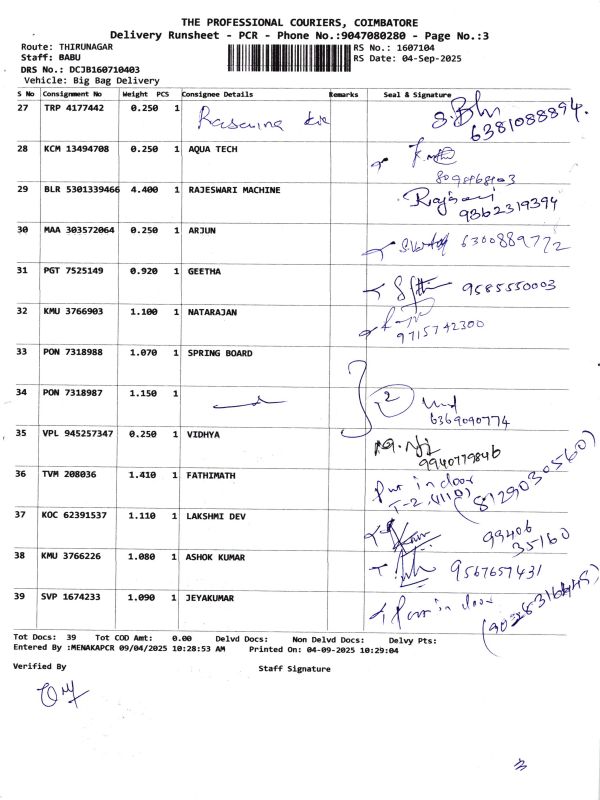 THE PROFESSIONAL COURIERS, COIMBATORE
Delivery Runsheet - PCR - Phone No.:9047080280 - Page No.:3
Route: THIRUNAGAR RS No.: 1607104
Staff: BABU RS Date: 04-Sep-2025
DRS No.: DCJB160710403
Vehicle: Big Bag Delivery
S No Consignment No Weight PCS Consignee Details Remarks Seal & Signature
27 TRP 4177442 0.250 1
6381088894.
28 KCM 13494708 0.250 1 AQUA TECH
29 BLR 5301339466 4.400 1 RAJESWARI MACHINE
9362319394
30 MAA 303572064 0.250 1 ARJUN 6300889772
31 PGT 7525149 0.920 1 GEETHA 9585550003
32 KMU 3766903 1.100 1 NATARAJAN
9715742300
33 PON 7318988 1.070 1 SPRING BOARD
34 PON 7318987 1.150 1 2
6369090774
35 VPL 945257347 0.250 1 VIDHYA
9940779846
36 TVM 208036 1.410 1 FATHIMATH Put in door
(8129030560)
37 KOC 62391537 1.110 1 LAKSHMI DEV 99406
35160
38 KMU 3766226 1.080 1 ASHOK KUMAR 9567657431
39 SVP 1674233 1.090 1 JEYAKUMAR in door
Tot Docs: 39 Tot COD Amt: 0.00 Delvd Docs: Non Delvd Docs: Delvy Pts:
Entered By :MENAKAPCR 09/04/2025 10:28:53 AM Printed On: 04-09-2025 10:29:04
Verified By Staff Signature